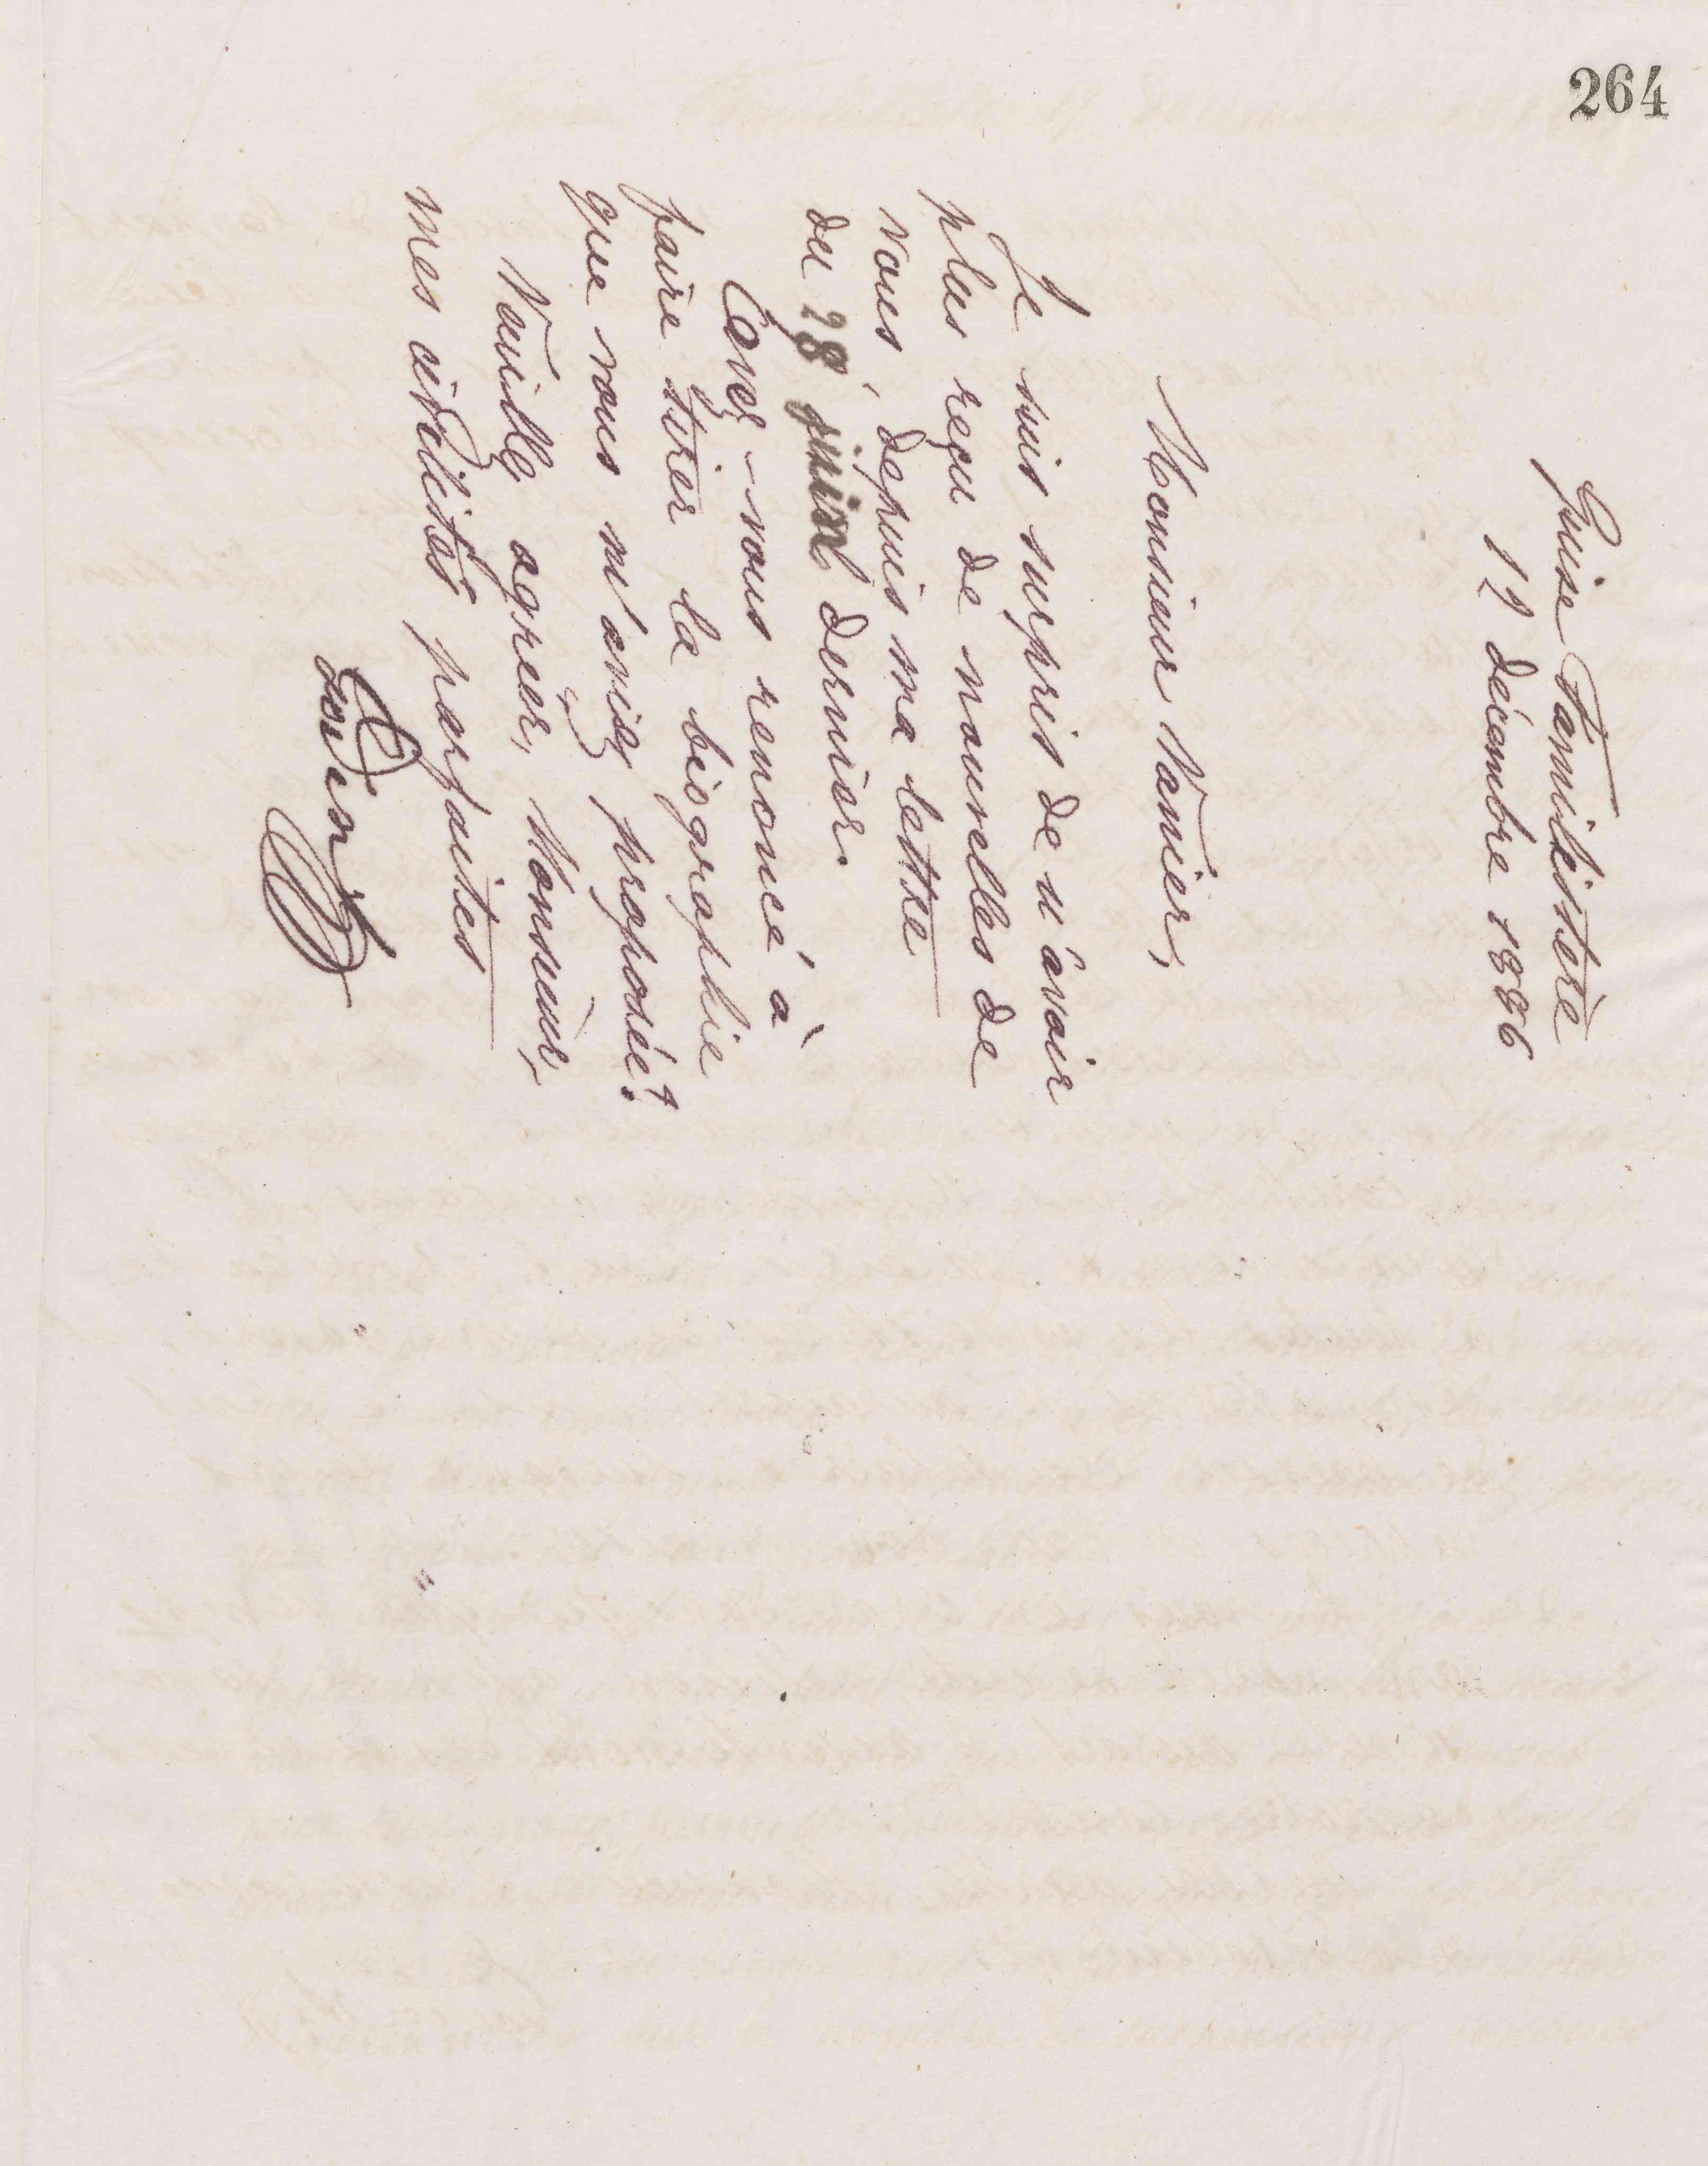 264
Guise Familistère
12 décembre 1886
Monsieur Vanier,
Je suis surpris de n'avoir
plus reçu de nouvelles de
vous, depuis ma lettre
du 28 juin dernier.
Avez-vous renoncé à
faire tirer la biographie
que vous m'aviez proposée?
Veuillez agréer, Monsieur,
mes civilités parfaites
Godin